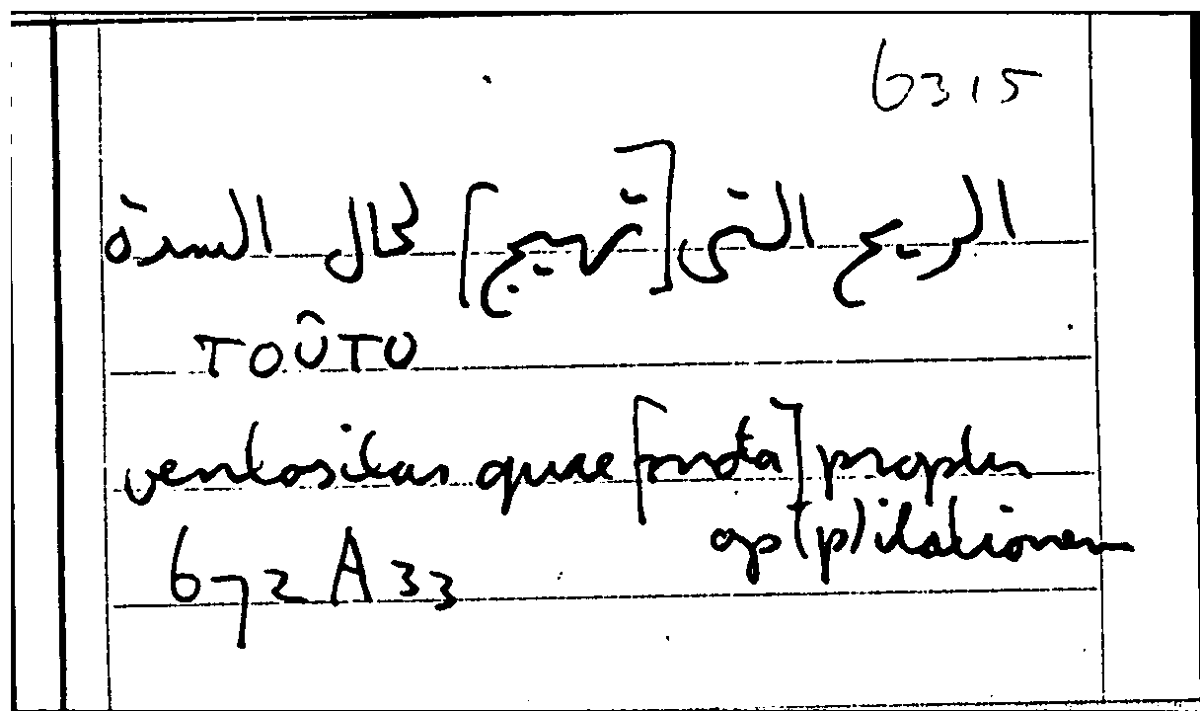 63,5
الريح التى [تهيج] لحال السدة
τοῦτο
ventositas quae [mota] propter
op(p)ilationem
672 A 33